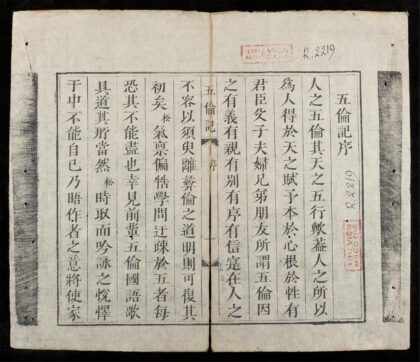 五倫記序
人之五倫其天之五行歟蓋人之所以
為人得於天之賦予本於心根於性有
君臣父子夫婦兄弟朋友所謂五倫因
之有義有親有別有序有信寔在人之
五倫記 序
不容以須臾離彝倫之道明則可復其
初矣松氣稟偏牿學問迂疎於五者每
恐其不能盡也幸見前輩五倫國語歌
具道其所當然松時取而吟詠之恍懌
于中不能自已乃晤作者之意將使家
R.2219
R.2219